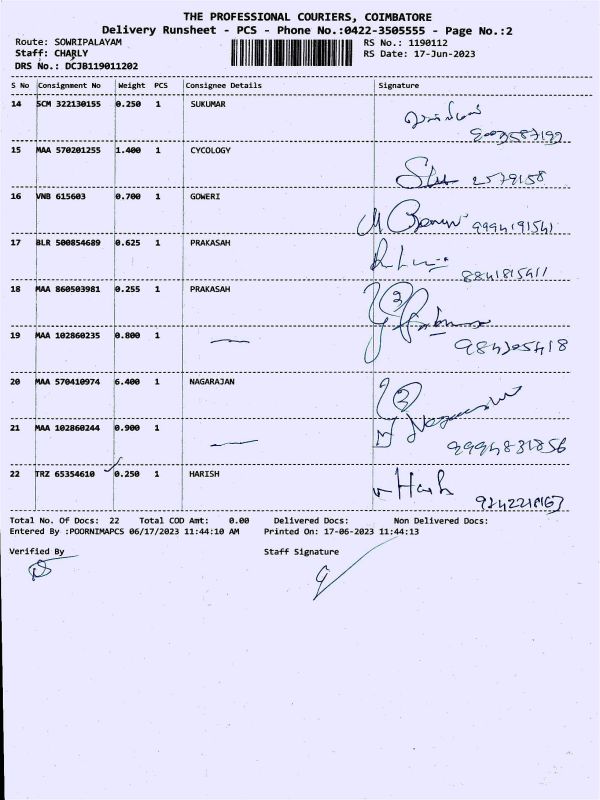 THE PROFESSIONAL COURIERS, COIMBATORE
Delivery Runsheet - PCS - Phone No.:0422-3505555 - Page No.:2
Route: SOWRIPALAYAM RS No.: 1190112
Staff: CHARLY RS Date: 17-Jun-2023
DRS No.: DCJB119011202
S No Consignment No Weight PCS Consignee Details Signature
14 SCM 322130155 0.250 1 SUKUMAR
15 MAA 570201255 1.400 1 CYCOLOGY
2579158
16 VNB 615603 0.700 1 GOWERI
9994191541
17 BLR 500854689 0.625 1 PRAKASAH
8841815411
18 MAA 860503981 0.255 1 PRAKASAH
19 MAA 102860235 0.800 1
20 MAA 570410974 6.400 1 NAGARAJAN
21 MAA 102860244 0.900 1
9994831856
22 TRZ 65354610 0.250 1 HARISH
Total No. Of Docs: 22 Total COD Amt: 0.00 Delivered Docs: Non Delivered Docs:
Entered By :POORNIMAPCS 06/17/2023 11:44:10 AM Printed On: 17-06-2023 11:44:13
Verified By Staff Signature